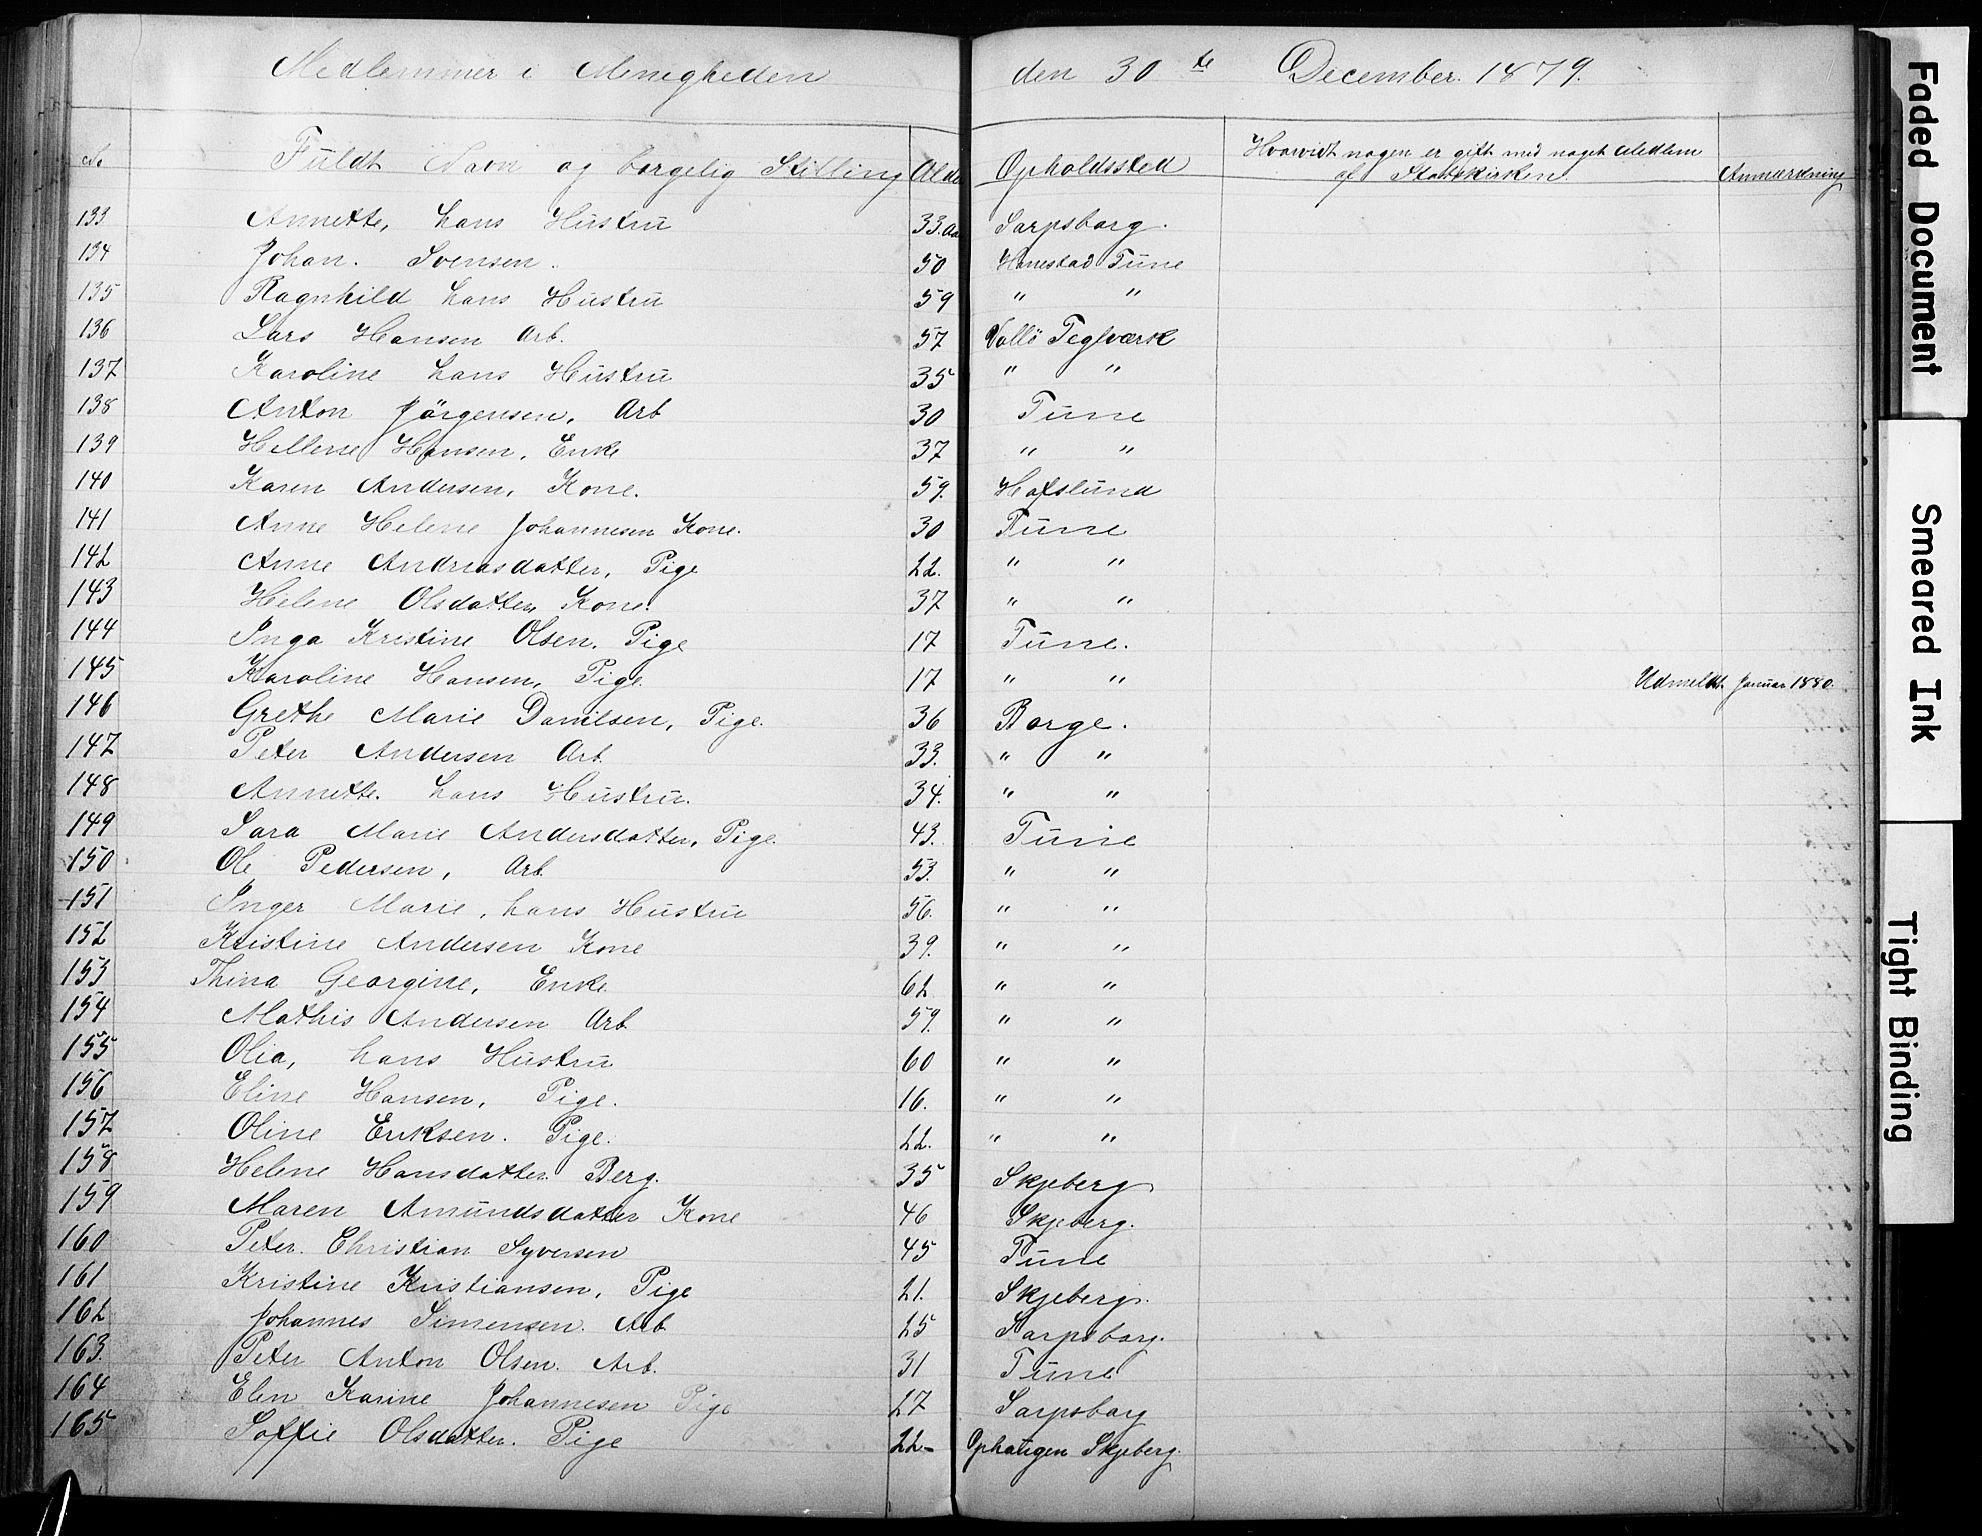 Medlemmer i Menigheden den 30 te December. 1879.
No Fuldt Navn og borgelig Stilling Alder Opholdssted Hvorvidt nogen er gift med noget Medlem af Statskirken Anmærkning
133 Annette, hans Hustru 33. Aar Sarpsborg.
134 Johan. Svensen. 50 Hanestad Tune
135 Ragnhild hans Hustru 59 " "
136 Lars Hansen Arb. 57 Vallö Teglværk
137 Karoline hans Hustru 35 " "
138 Anton Jörgensen, Arb 30 Tune
139 Hellene Hansen, Enke 37 " "
140 Karen Andersen, Kone. 59. Hafslund
141 Anne Helene Johannesen Kone. 30 Tune
142 Anne Andreasdatter, Pige 22. " "
143 Helene Olsdatter Kone. 37 " "
144 Inga Kristine Olsen. Pige 17 Tune.
145 Karoline Hansen, Pige. 17 " " Udmeldt Januar 1880.
146 Grethe Marie Danilsen, Pige. 36 Borge.
147 Peter Andersen Arb. 33. " "
148 Annette. hans Hustru. 34. " "
149 Sara Marie Andersdatter, Pige. 43. Tune
150 Ole Pedersen, Arb. 53. " "
151 Inger Marie, hans Hustru 56. " "
152 Kristine Andersen Kone 39. " "
153 Thina Georgine, Enke. 62 " "
154 Mathis Andersen Arb. 59. " "
155 Olia, hans Hustru 60 " "
156 Eline Hansen, Pige. 16. " "
157 Oline Eriksen. Pige. 22. " "
158 Helene Hansdatter Berg. 35 Skjeberg
159 Maren Amundsdatter Kone 46 Skjeberg.
160 Peter. Christian Syversen 45 Tune
161 Kristine Kristiansen, Pige 21. Skjeberg.
162 Johannes Simensen. Arb. 25 Sarpsborg.
163. Peter Anton Olsen. Arb. 31 Tune
164 Elen Karine Johannesen Pige 27 Sarpsborg
165 Soffie Olsdatter. Pige 22- Ophaugen Skjeberg.
Faded Document
Smeared Ink
Tight Binding